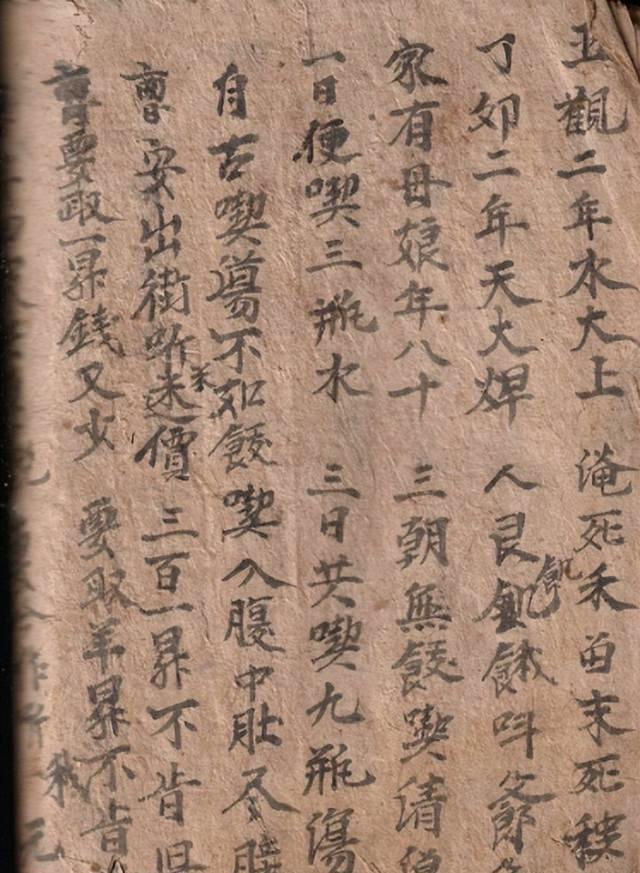 玉觀二年水大上 淹死禾苗末死
丁卯二年天大焊 人艮飢餓叫爺
家有母娘年八十 三朝無餕喫清
一日便喫三瓶水 三日共喫九瓶湯
自古喫蕩不如餕 喫入腹中肚尽
安出街听迷米價 三百一昇不肯
要取一昇錢又少 要取羊昇不肯